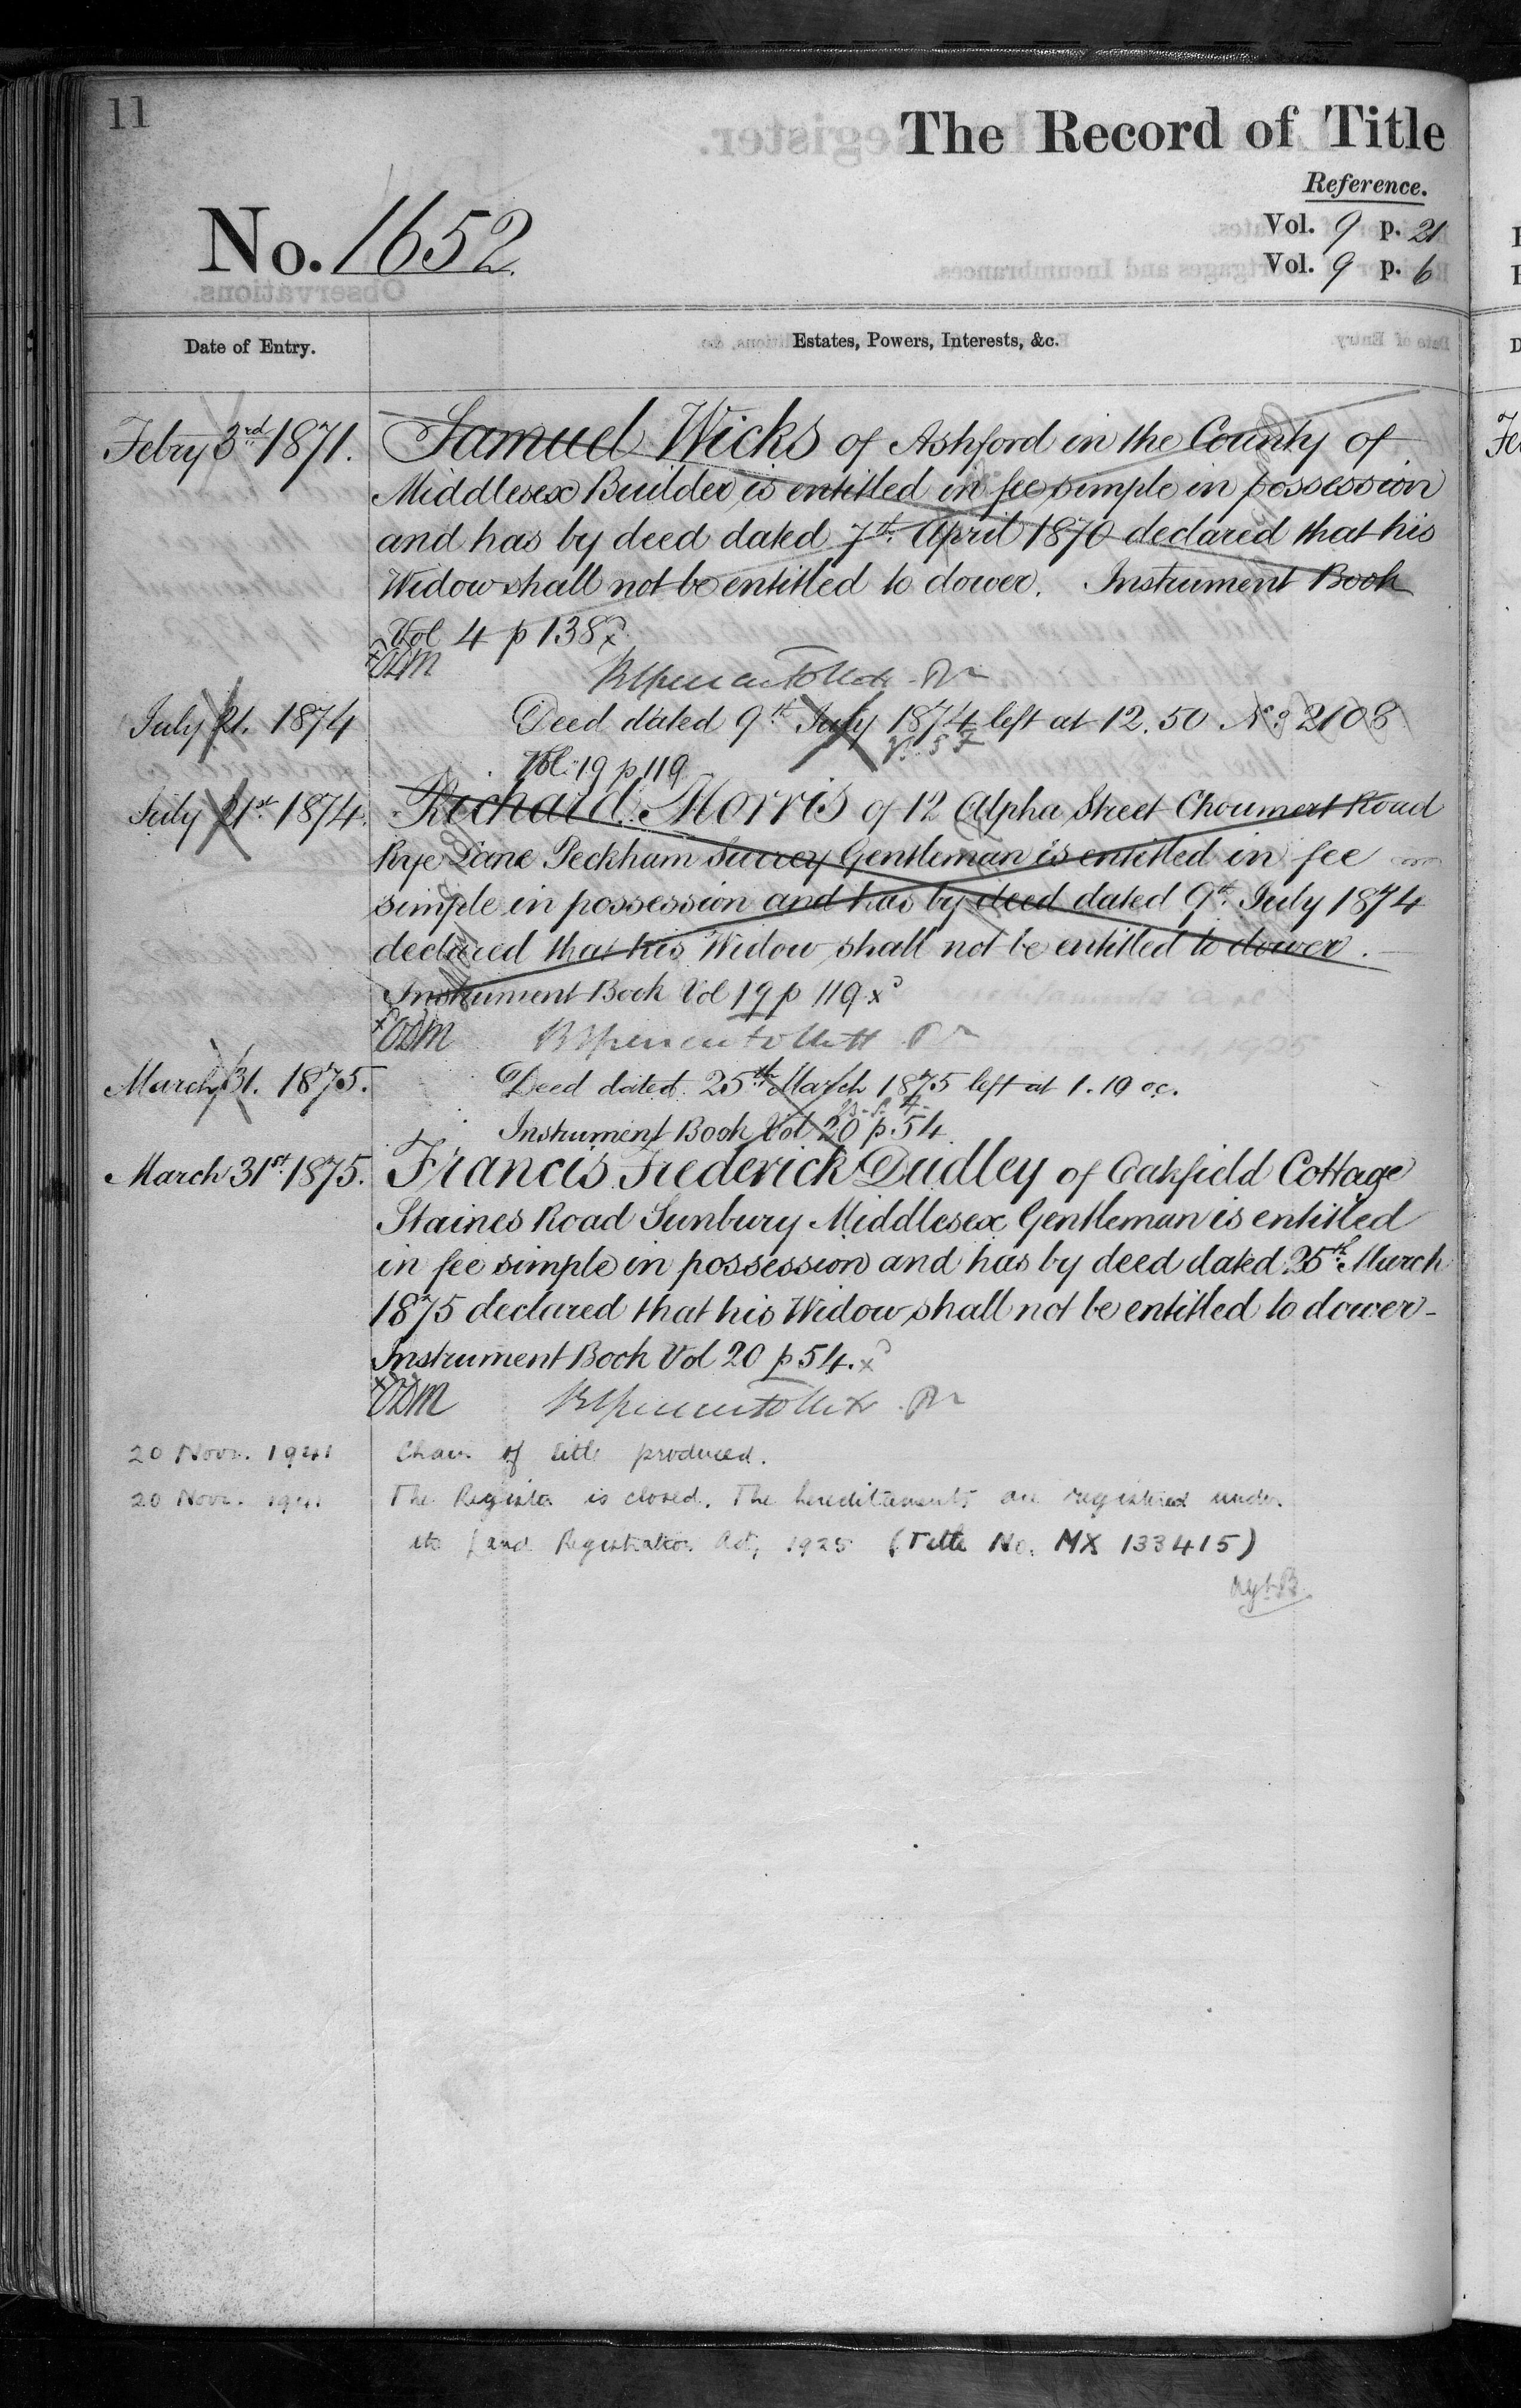 11
The Record of Title
Reference.
No. 1652.
Vol. 9 p. 21
Vol. 9 p. 6
Date of Entry.
Estates, Powers, Interests, &c.
Febry 3rd 1871. Samuel Wicks of Ashford in the County of
Middlesex Builder is entitled in fee simple in possession
and has by deed dated 7th April 1870 declared that his
Widow shall not be entitled to dower. Instrument Book
Vol 4 p 138 x
x ODM
July 21. 1874 Deed dated 9th July 1874 left at 12.50 No. 2108
Vol. 19 p 119
July 21st 1874. Richard Morris of 12 Alpha Street Choumert Road
Rye Lane Peckham Surrey Gentleman is entitled in fee
simple in possession and has by deed dated 9th July 1874
declared that his Widow shall not be entitled to dower.
Instrument Book Vol 19 p 119 x
x ODM
March 31. 1875. Deed dated 25th March 1875 left at 1.19 oc.
Instrument Book Vol 20 p. 54
March 31st 1875. Francis Frederick Dudley of Oakfield Cottage
Staines Road Sunbury Middlesex Gentleman is entitled
in fee simple in possession and has by deed dated 25th March
1875 declared that his Widow shall not be entitled to dower-
Instrument Book Vol 20 p 54. x
x ODM
20 Novr. 1941 Chain of title produced.
20 Novr. 1941 The Register is closed. The hereditaments are registered under
the Land Registration Act, 1925 (Title No. MX 133415)